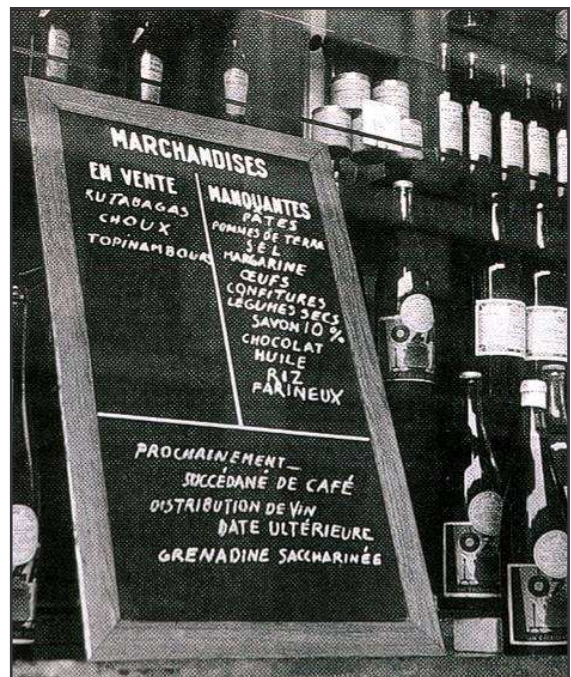 MARCHANDISES
EN VENTE
RUTABAGAS
CHOUX
TOPINAMBOURS
MANQUANTES
PÂTES
POMMES DE TERRA
SEL
MARGARINE
ŒUFS
CONFITURES
LÉGUMES SECS
SAVON 10%
CHOCOLAT
HUILE
RIZ
FARINEUX
PROCHAINEMENT_
SUCCÉDANÉ DE CAFÉ
DISTRIBUTION DE VIN
DATE ULTÉRIEURE
GRENADINE SACCHARINÉE